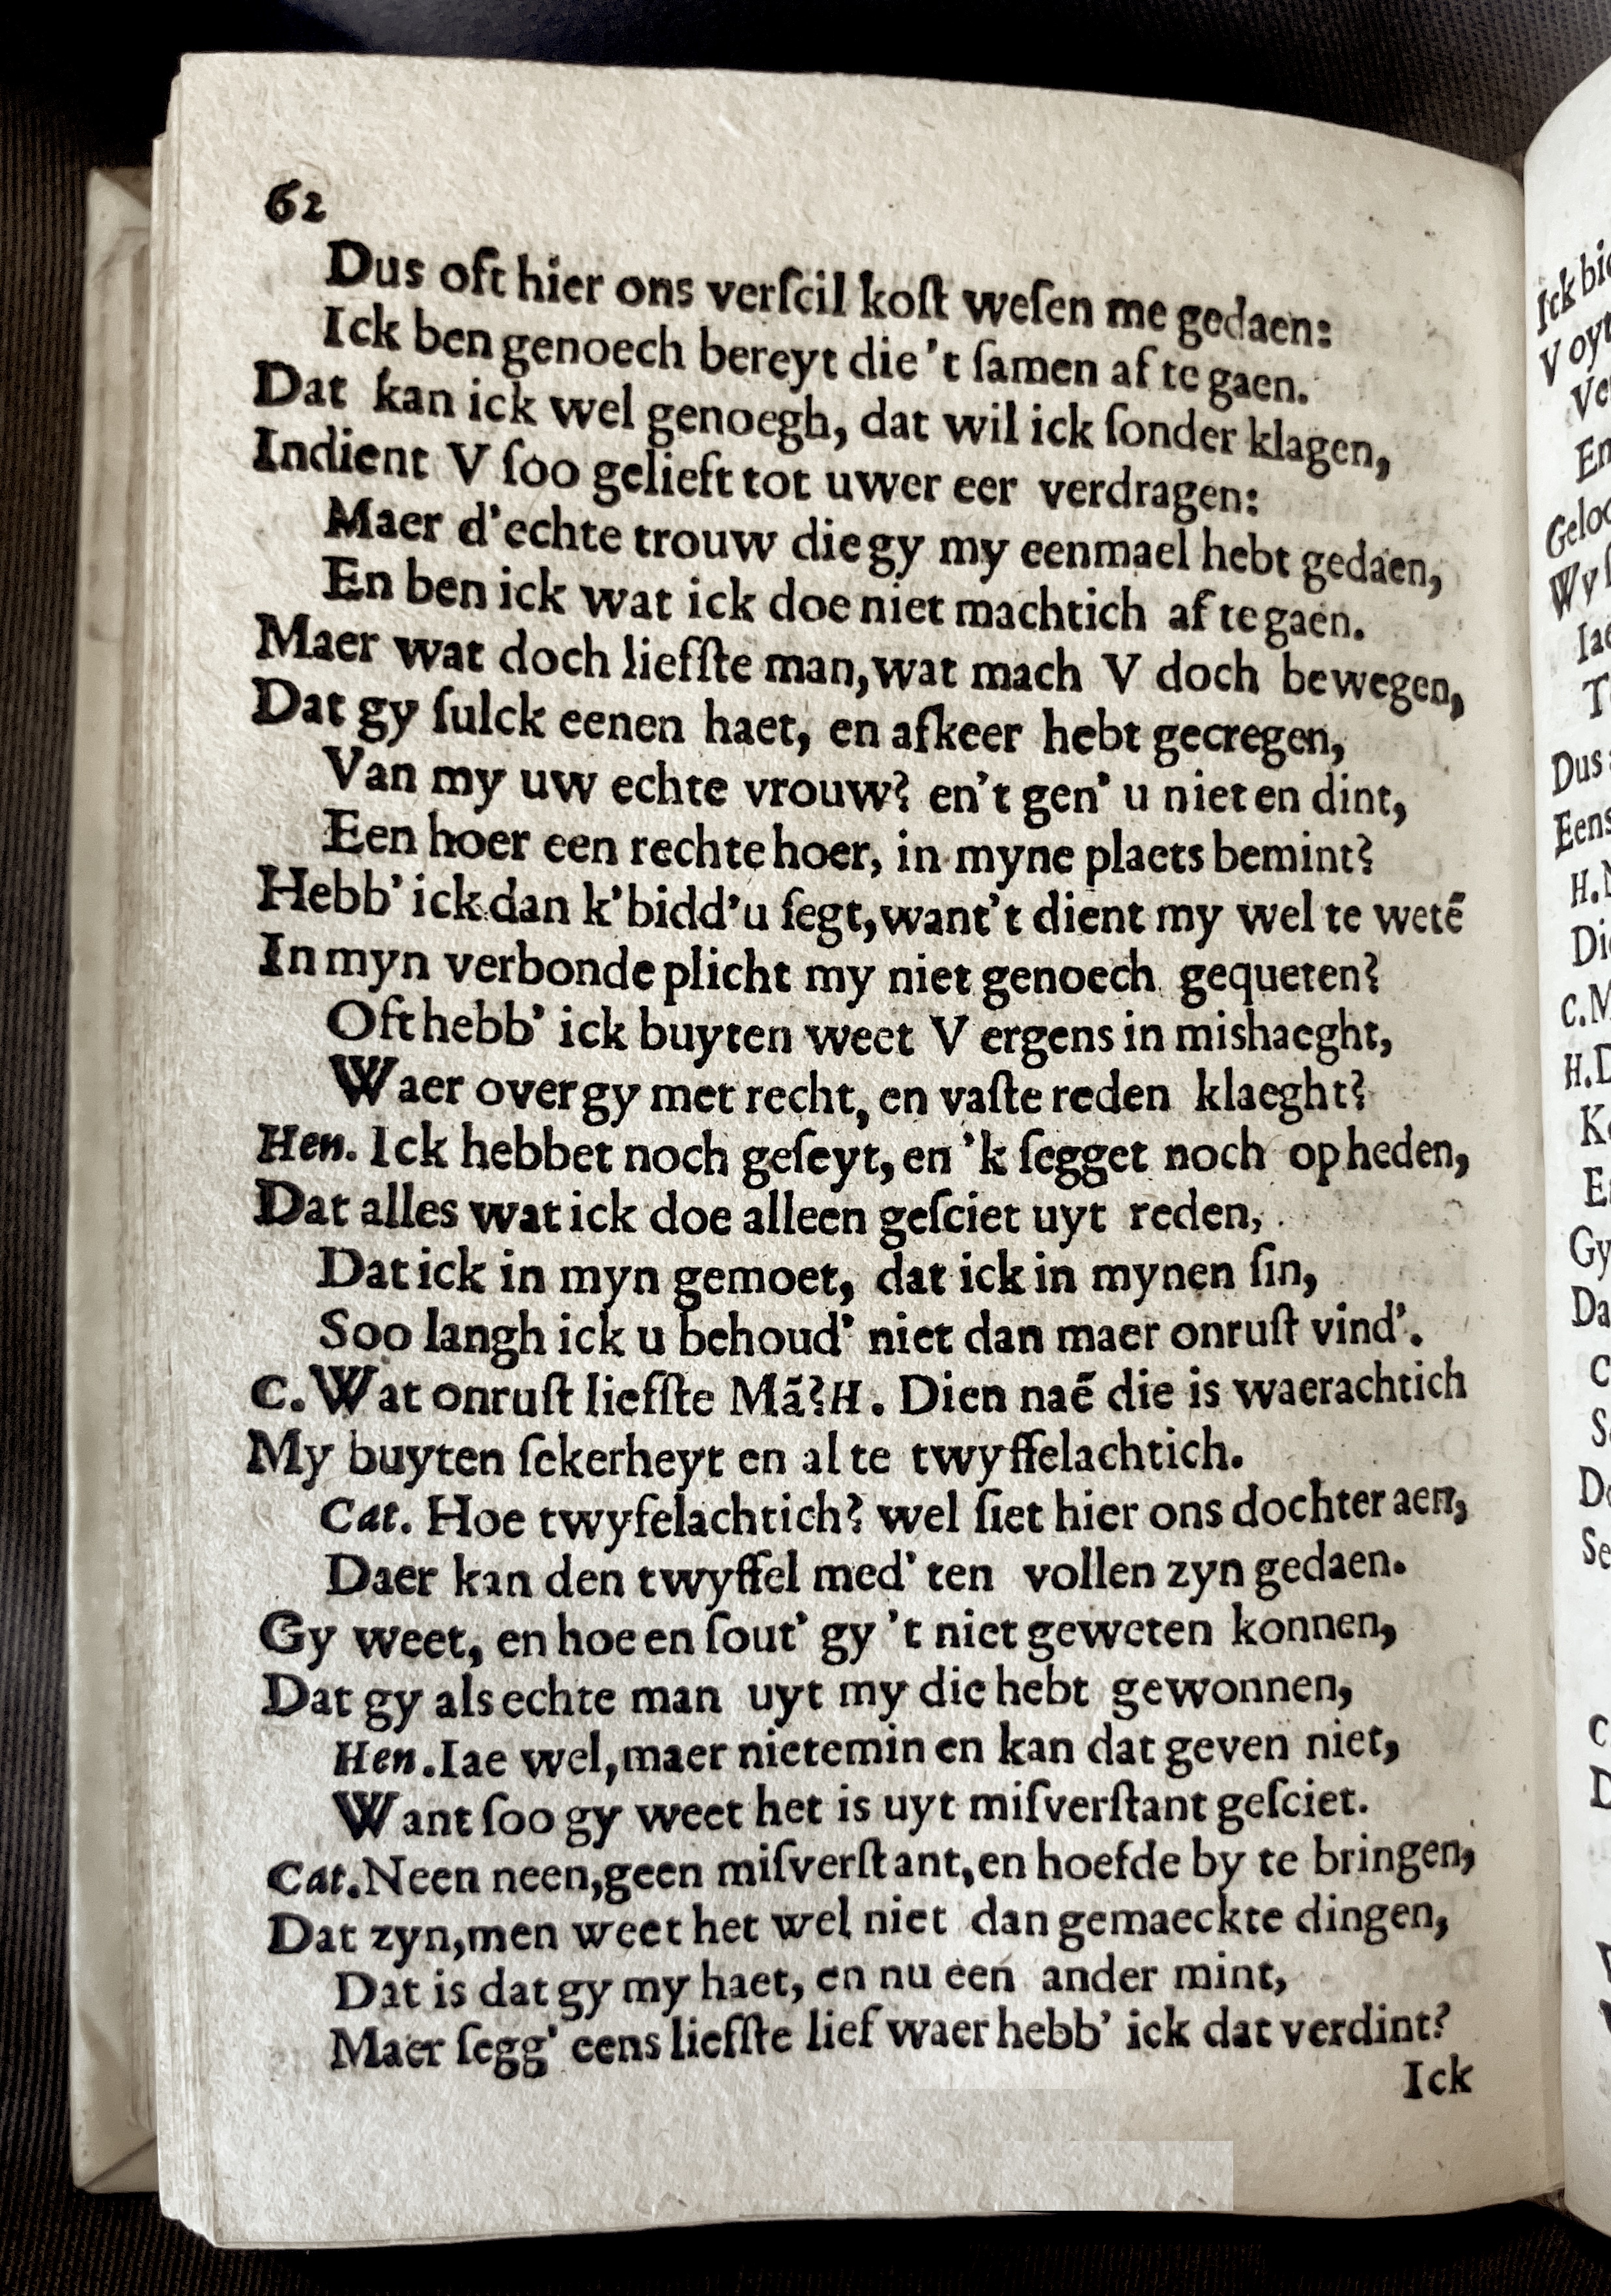 62
Dus oft hier ons verſcil koſt weſen me gedaen:
Ick ben genoech bereyt die 't ſamen af te gaen.
Dat kan ick wel genoegh, dat wil ick ſonder klagen,
Indient V ſoo gelieft tot uwer eer verdragen:
Maer d'echte trouw die gy my eenmael hebt gedaen,
En ben ick wat ick doe niet machtich af te gaen.
Maer wat doch liefſte man, wat mach V doch bewegen,
Dat gy ſulck eenen haet, en afkeer hebt gecregen,
Van my uw echte vrouw? en't gen' u niet en dint,
Een hoer een rechte hoer, in myne plaets bemint?
Hebb' ick dan k'bidd'u ſegt, want't dient my wel te wetē
In myn verbonde plicht my niet genoech gequeten?
Oft hebb' ick buyten weet V ergens in mishaeght,
Waer over gy met recht, en vaſte reden klaeght?
Hen. Ick hebbet noch geſeyt, en 'k ſegget noch op heden,
Dat alles wat ick doe alleen geſciet uyt reden,
Dat ick in myn gemoet, dat ick in mynen ſin,
Soo langh ick u behoud' niet dan maer onruſt vind'.
C. Wat onruſt liefſte Mā? H. Dien naē die is waerachtich
My buyten ſekerheyt en al te twyffelachtich.
Cat. Hoe twyfelachtich? wel ſiet hier ons dochter aen,
Daer kan den twyffel med' ten vollen zyn gedaen.
Gy weet, en hoe en ſout' gy 't niet geweten konnen,
Dat gy als echte man uyt my die hebt gewonnen,
Hen. Iae wel, maer nietemin en kan dat geven niet,
Want ſoo gy weet het is uyt miſverſtant geſciet.
Cat. Neen neen, geen miſverſtant, en hoefde by te bringen,
Dat zyn, men weet het wel niet dan gemaeckte dingen,
Dat is dat gy my haet, en nu een ander mint,
Maer ſegg' eens liefſte lief waer hebb' ick dat verdint?
Ick